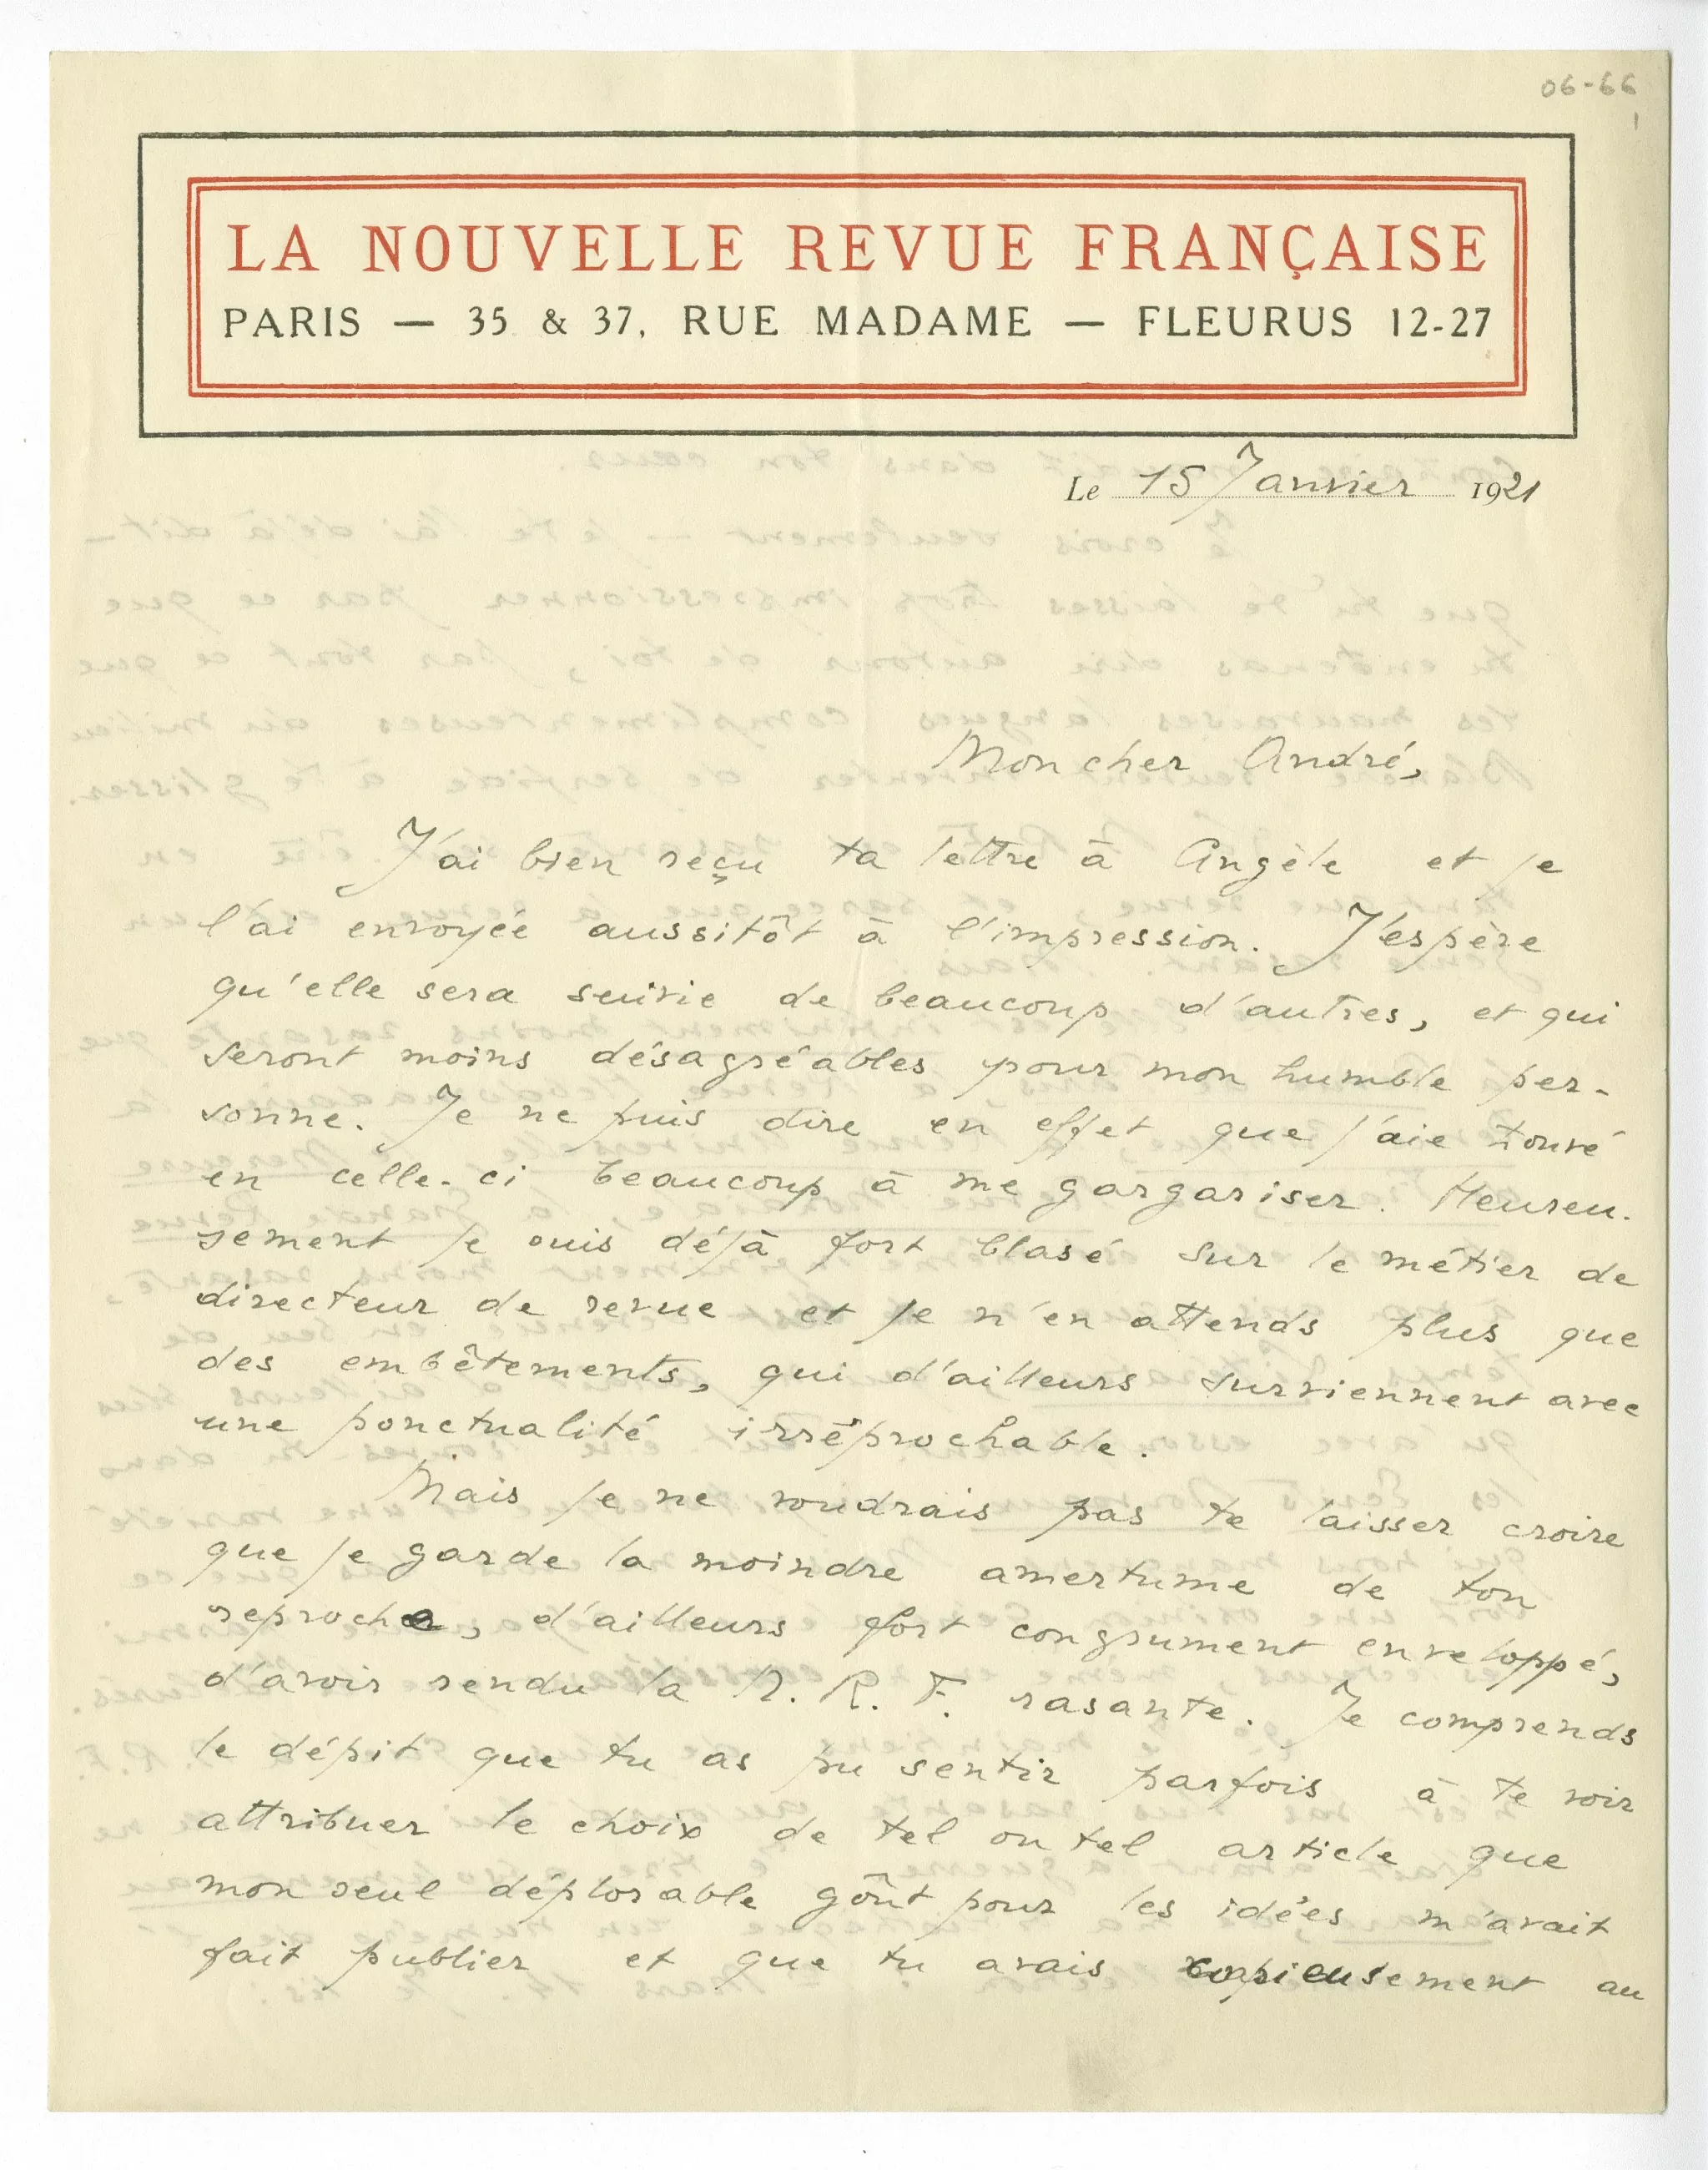 06-66
1
LA NOUVELLE REVUE FRANÇAISE
PARIS — 35 & 37, RUE MADAME — FLEURUS 12-27
Le 15 Janvier 1921
Mon cher André,
J'ai bien reçu ta lettre à Angèle et je
l'ai envoyée aussitôt à l'impression. J'espère
qu'elle sera suivie de beaucoup d'autres, et qui
seront moins désagréables pour mon humble per-
sonne. Je ne puis dire en effet que j'aie trouvé
en celle-ci beaucoup à me gargariser. Heureu-
sement je suis déjà fort blasé sur le métier de
directeur de revue et je n'en attends plus que
des embêtements, qui d'ailleurs surviennent avec
une ponctualité irréprochable.
Mais je ne voudrais pas te laisser croire
que je garde la moindre amertume de ton
reproche, d'ailleurs fort congrument enveloppé,
d'avoir rendu la N. R. F. rasante. Je comprends
le dépit que tu as pu sentir parfois à te voir
attribuer le choix de tel ou tel article que
mon seul déplorable goût pour les idées m'avait
fait publier et que tu avais copieusement au